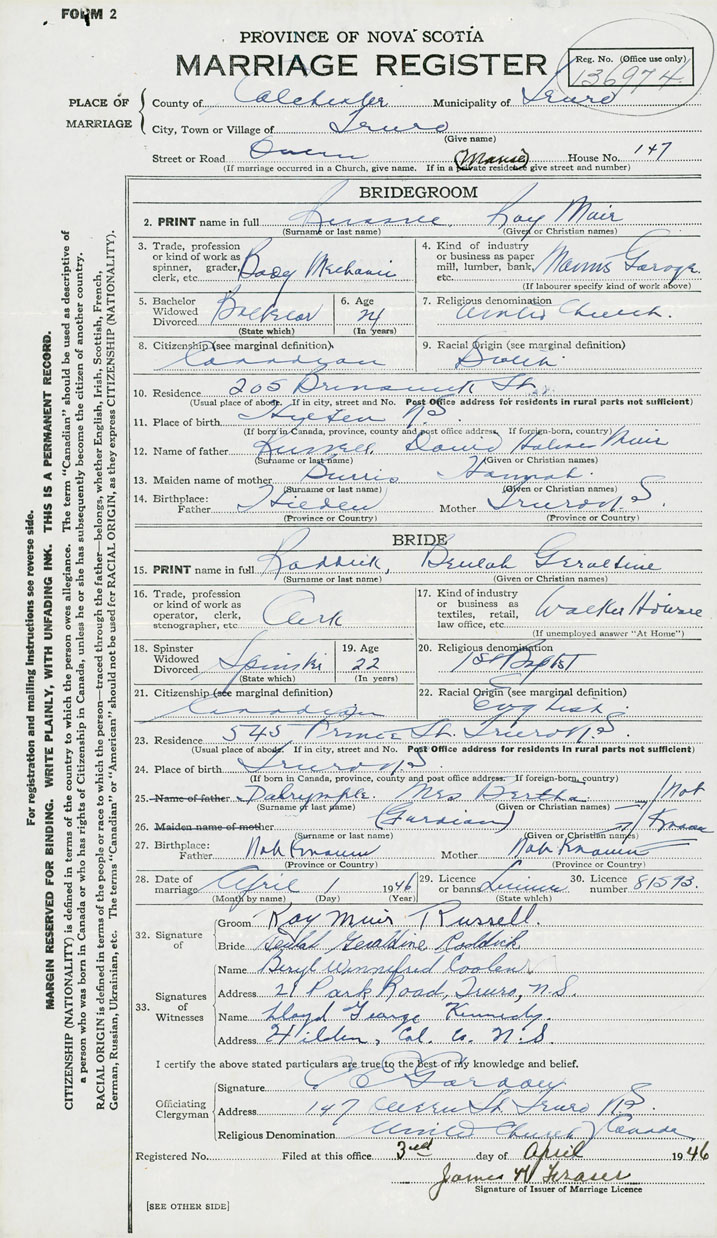 FORM 2
PROVINCE OF NOVA SCOTIA
MARRIAGE REGISTER
Reg. No. (Office use only)
136974
PLACE OF MARRIAGE
County of Colchester Municipality of Truro
City, Town or Village of Truro
(Give name)
Street or Road Queen (Manse) House No. 147
(If marriage occurred in a Church, give name. If in a private residence give street and number)
BRIDEGROOM
2. PRINT name in full Russell, Roy Muir
(Surname or last name) (Given or Christian names)
3. Trade, profession or kind of work as spinner, grader, clerk, etc. Body Mechanic
4. Kind of industry or business as paper mill, lumber, bank, etc. Garage
(If labourer specify kind of work above)
5. Bachelor Widowed Divorced Bachelor
(State which)
6. Age 24
(In years)
7. Religious denomination United Church.
8. Citizenship (see marginal definition) Canadian
9. Racial Origin (see marginal definition)
10. Residence 205 Brunswick St.
(Usual place of abode. If in city, street and No. Post Office address for residents in rural parts not sufficient)
11. Place of birth N.S
(If born in Canada, province, county and post office address. If foreign-born, country)
12. Name of father Russell, David Muir
(Surname or last name) (Given or Christian names)
13. Maiden name of mother Burris Hannah
(Surname or last name) (Given or Christian names)
14. Birthplace: Father Hilden Mother Truro N.S.
(Province or Country) (Province or Country)
BRIDE
15. PRINT name in full Roddick, Beulah Geraldine
(Surname or last name) (Given or Christian names)
16. Trade, profession or kind of work as operator, clerk, stenographer, etc Clerk
17. Kind of industry or business as textiles, retail, law office, etc. Walker
(If unemployed answer "At Home")
18. Spinster Widowed Divorced Spinster
(State which)
19. Age 22
(In years)
20. Religious denomination 1st Baptist
21. Citizenship (see marginal definition) Canadian
22. Racial Origin (see marginal definition) English
23. Residence 545 Prince St. Truro N.S.
(Usual place of abode. If in city, street and No. Post Office address for residents in rural parts not sufficient)
24. Place of birth Truro N.S.
(If born in Canada, province, county and post office address. If foreign-born, country)
25. Name of father Dalrymple, Mrs Bertha Not
(Surname or last name) (Given or Christian names)
26. Maiden name of mother (Guardian) Known
(Surname or last name) (Given or Christian names)
27. Birthplace: Father Not Known Mother Not Known
(Province or Country) (Province or Country)
28. Date of marriage April 1 1946
(Month by name) (Day) (Year)
29. Licence or banns License
(State which)
30. Licence number 81593.
32. Signature of
Groom Roy Muir Russell.
Bride Beulah Geraldine Roddick
33. Signatures of Witnesses
Name Beryl Winnifred Coolen
Address 21 Park Road, Truro, N.S.
Name Lloyd George Kennedy.
Address Hilden, Col. Co. N.S
I certify the above stated particulars are true to the best of my knowledge and belief.
Officiating Clergyman
Signature Gordon
Address 147 Queen St Truro N.S.
Religious Denomination United Church of Canada
Registered No. Filed at this office 3rd day of April 1946
James H Fraser
Signature of Issuer of Marriage Licence
[SEE OTHER SIDE]
For registration and mailing instructions see reverse side.
MARGIN RESERVED FOR BINDING. WRITE PLAINLY, WITH UNFADING INK. THIS IS A PERMANENT RECORD.
CITIZENSHIP (NATIONALITY) is defined in terms of the country to which the person owes allegiance. The term "Canadian" should be used as descriptive of
a person who was born in Canada or who has rights of Citizenship in Canada, unless he or she has subsequently become the citizen of another country.
RACIAL ORIGIN is defined in terms of the people or race to which the person—traced through the father—belongs, whether English, Irish, Scottish, French,
German, Russian, Ukrainian, etc. The terms "Canadian" or "American" should not be used for RACIAL ORIGIN, as they express CITIZENSHIP (NATIONALITY).